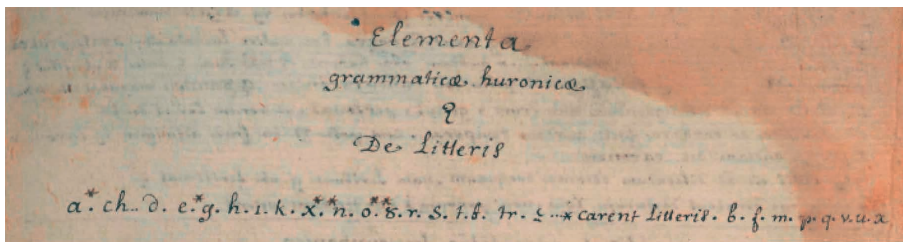 Elementa
grammaticæ huronicæ
De Litteris
a*. ch.. d. e*. g. h. ı. k. x*. *n. o*. *8. r. s. t. tr. carent litteris. b. f. m. p. q. v. u. x